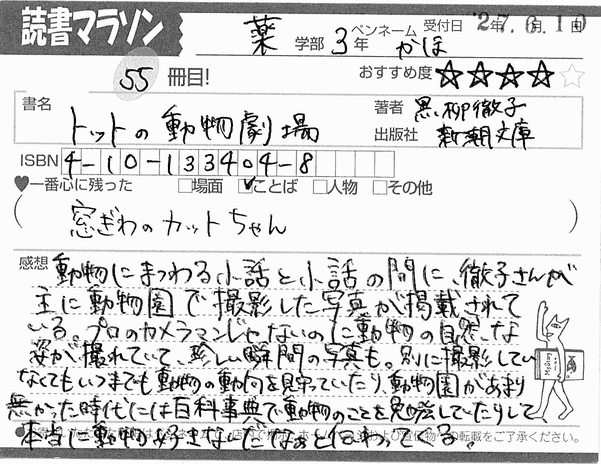 読書マラソン
薬 学部 3年 ペンネーム かほ 受付日 '27.6月10日
55 冊目! おすすめ度 ★★★★☆
書名 トットの動物劇場 著者 黒柳徹子
出版社 新潮文庫
ISBN 4-10-133404-8
♥一番心に残った □場面 ☑ことば □人物 □その他
(窓ぎわのカットちゃん)
感想 動物にまつわる小話と小話の間に、徹子さんが
主に動物園で撮影した写真が掲載されて
いる。プロのカメラマンじゃないのに動物の自然な
姿が撮れていて、珍しい瞬間の写真も。別に撮影してい
なくてもいつまでも動物の動向を見守っていたり、動物園があまり
無かった時代には百科事典で動物のことを勉強していたりして、
本当に動物好きなんだなぁと伝わってくる。
の転載をご了承ください。